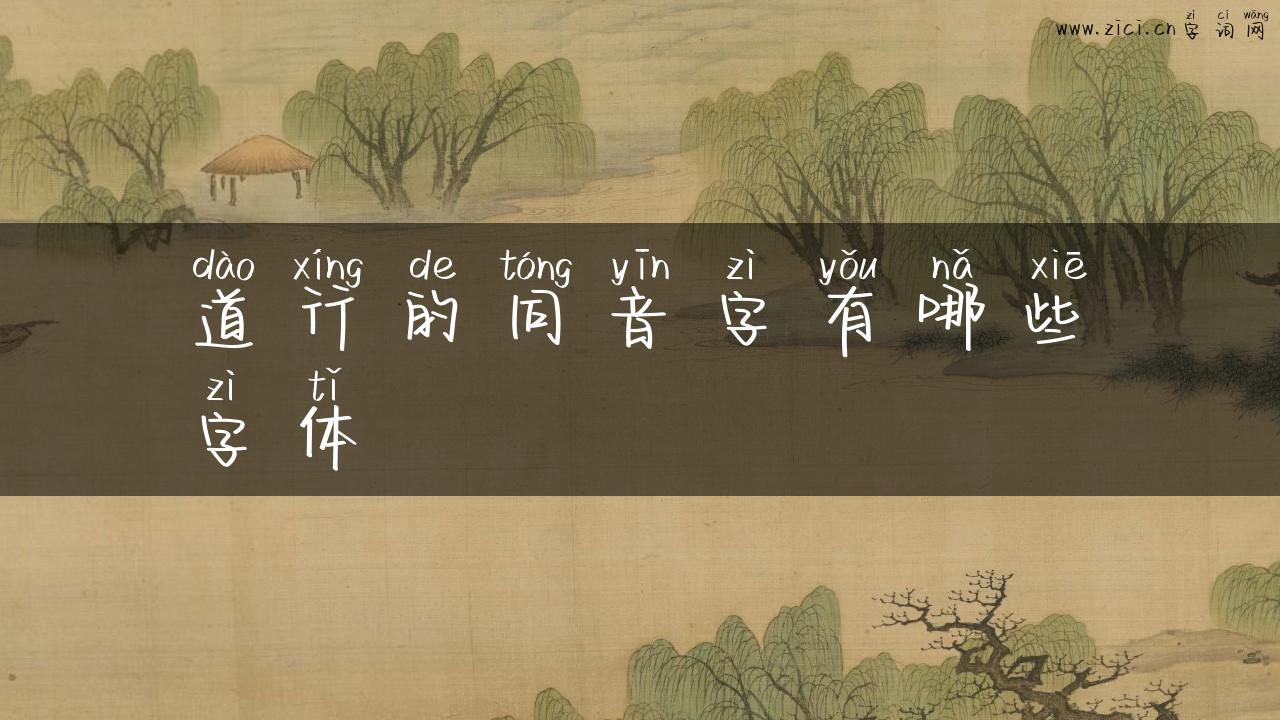 zì cí wǎng
www.zici.cn 字 词 网
dào xíng de tóng yīn zì yǒu nǎ xiē
道 行 的 同 音 字 有 哪 些
zì tǐ
字 体